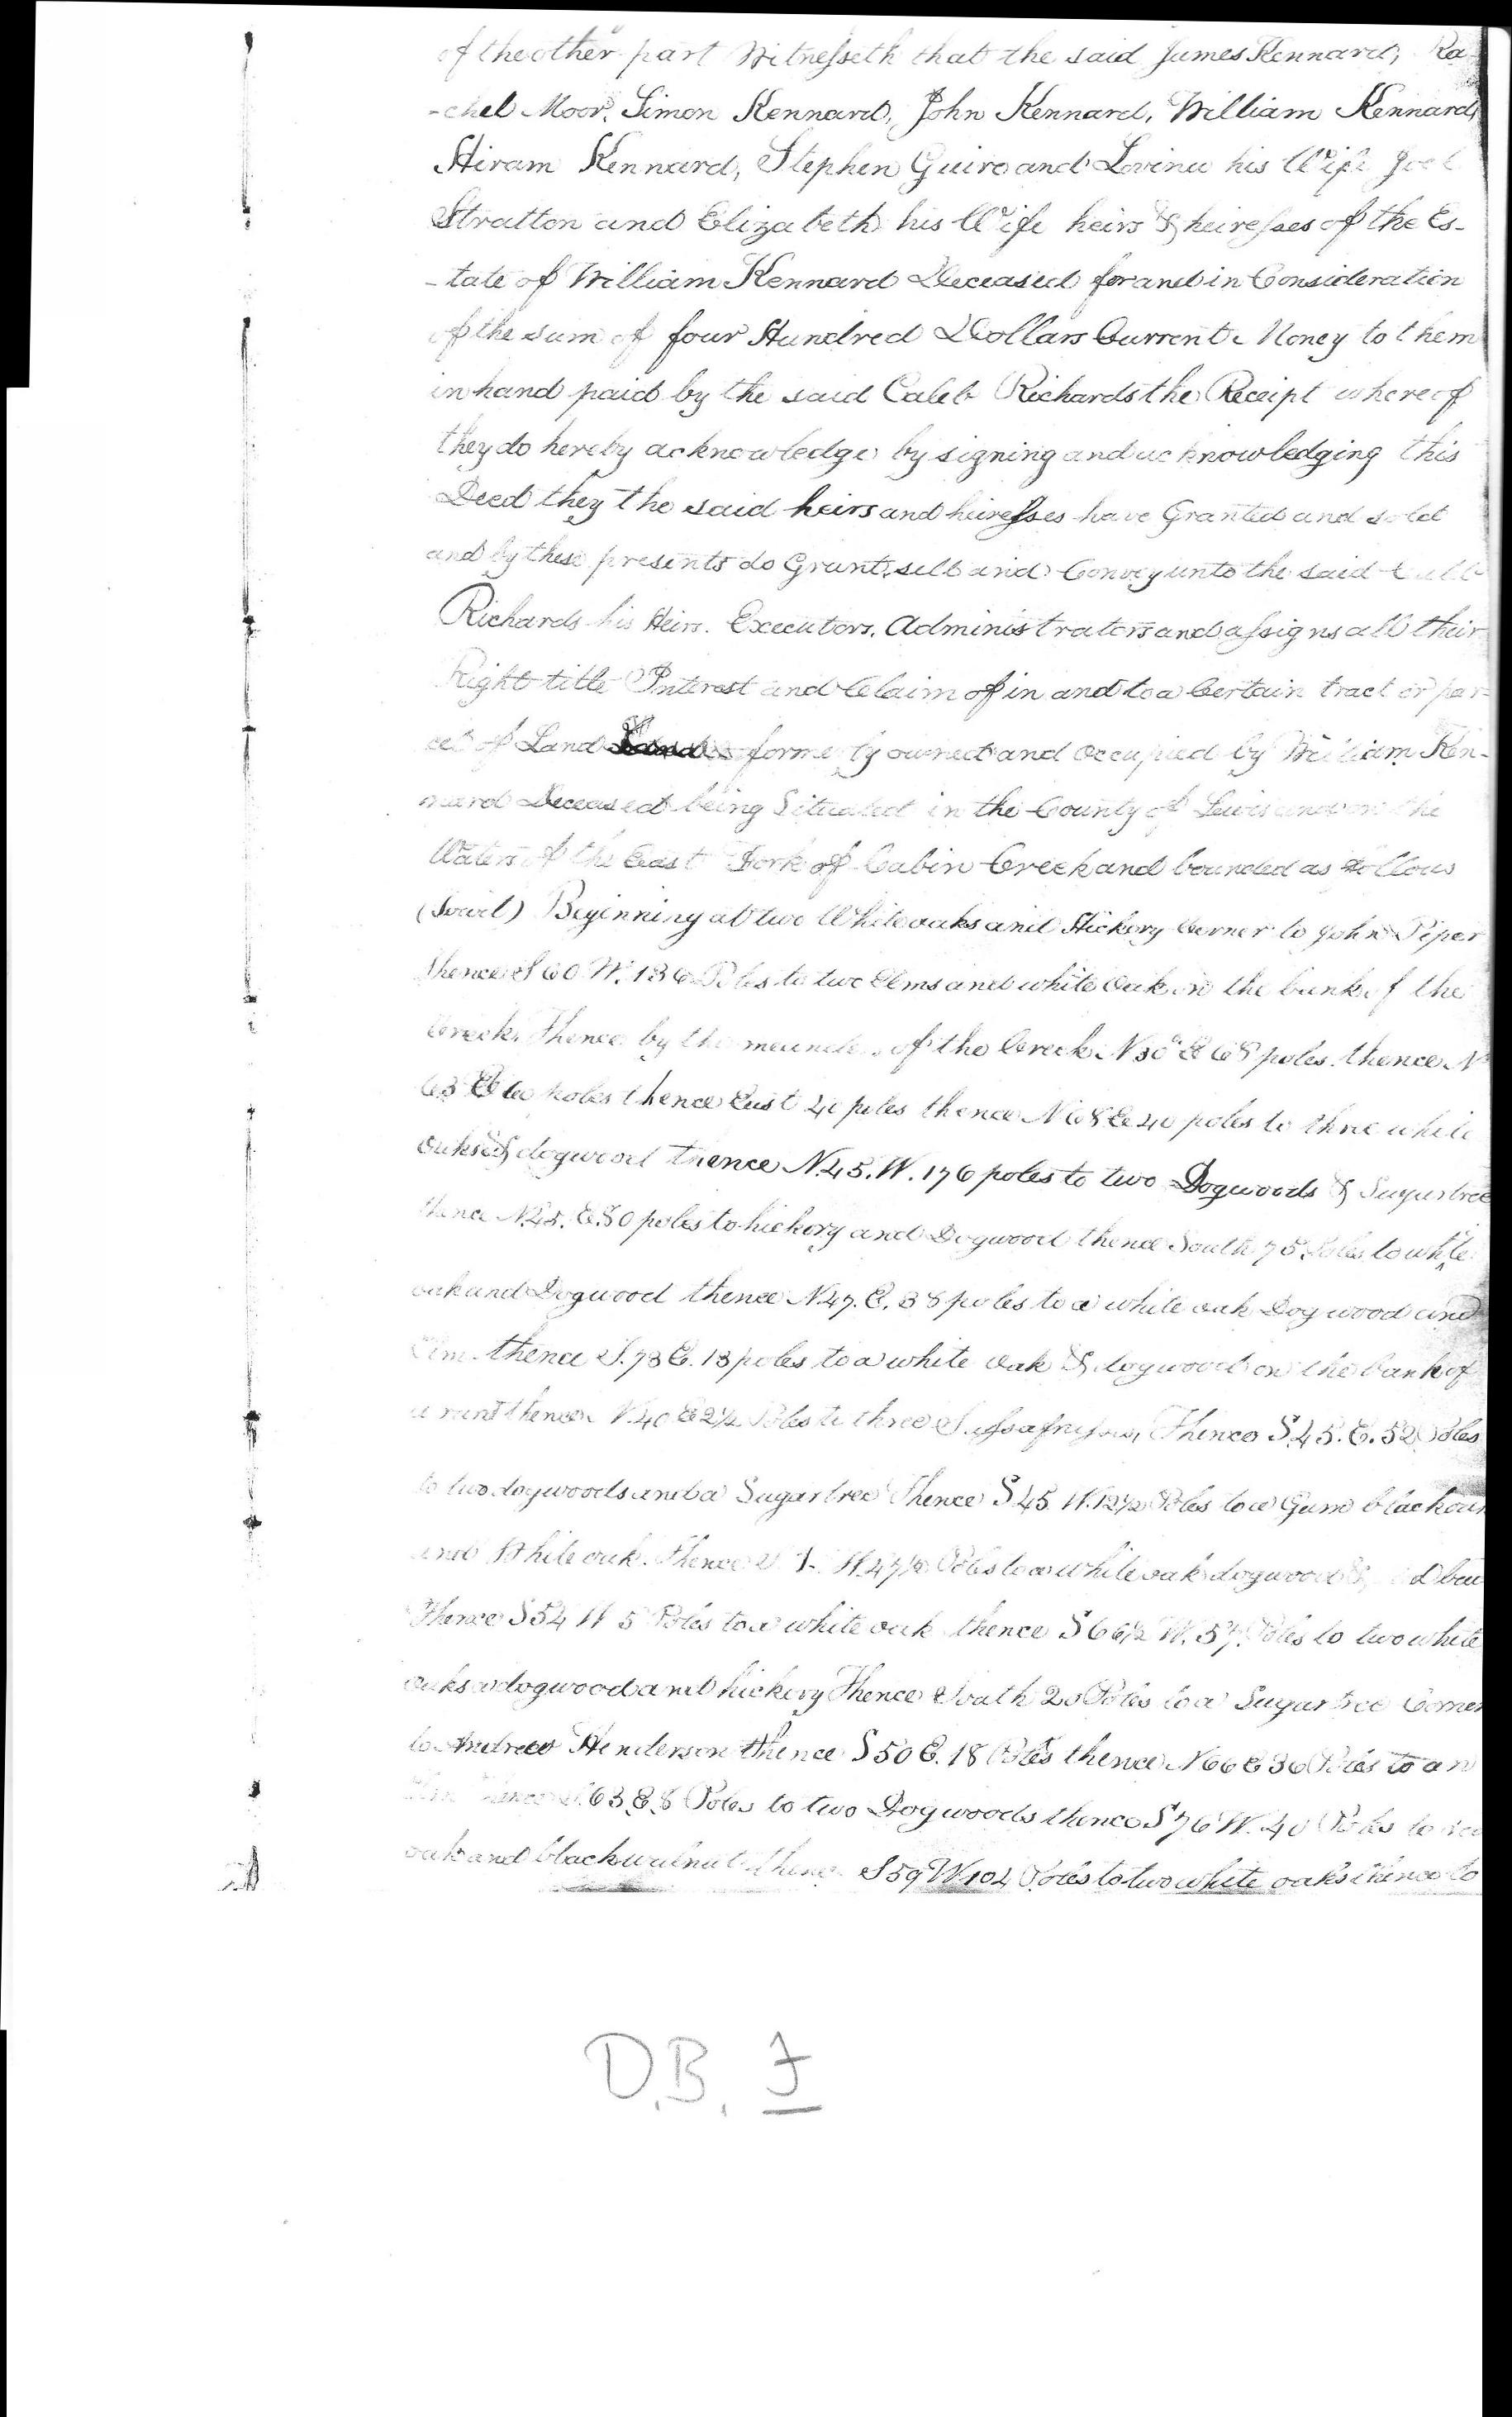 of the other part Witnesseth that the said James Kennard, Ra-
-chel Moor, Simon Kennard, John Kennard, William Kennard,
Hiram Kennard, Stephen Guire and Lovina his Wife Joel
Stratton and Elizabeth his Wife heirs & heiresses of the Es-
-tate of William Kennard Deceased for and in Consideration
of the sum of four Hundred Dollars Current Money to them
in hand paid by the said Caleb Richards the Receipt whereof
they do hereby acknowledge by signing and acknowledging this
Deed they the said heirs and heiresses have Granted and sold
and by these presents do Grant, sell and Convey unto the said Caleb
Richards his Heirs. Executors, Administrators and assigns all their
Right title Interest and Claim of in and to a Certain tract or par-
cel of Land formerly owned and Occupied by William Ken-
nard Deceased being Situated in the County of Lewis and on the
Waters of the East Fork of Cabin Creek and bounded as follows
(towit) Beginning at two White oaks and Hickory Corner to John Piper
thence S 60 W. 136 Poles to two Elms and white Oak on the bank of the
Creek, Thence by the meanders of the Creek N 30 E 68 poles. thence N
63 E 60 poles thence East 40 poles thence N 68 E 40 poles to three white
oaks & dogwood thence N.45.W. 176 poles to two Dogwoods & Sugartree
thence N.45. E.80 poles to hickory and Dogwood thence South 75 Poles to white
oak and Dogwood thence N.47. E. 38 poles to a white oak Dogwood and
Elm. thence S.73 E. 13 poles to a white Oak & dogwood on the bank of
a run thence N.40 E 2½ Poles to three Thence S.45. E. 52 Poles
to two dogwoods and a Sugartree Thence S 45 W.12½ Poles to a Gum black oak
and White oak. Thence W.47½ Poles to a white oak dogwood &
Thence S 54 W 5 Poles to a white oak thence S 66½ W. 57. Poles to two white
oaks a dogwood and hickory Thence South 20 Poles to a Sugartree Corner
to Andrew Henderson thence S 50 E. 18 Poles thence N 66 E 36 Poles to an
Elm thence S.63 E 8 Poles to two Dogwoods thence S 76 W. 40 Poles to
oak and black walnut thence S 59 W 104 Poles to two white oaks thence to
D.B. F